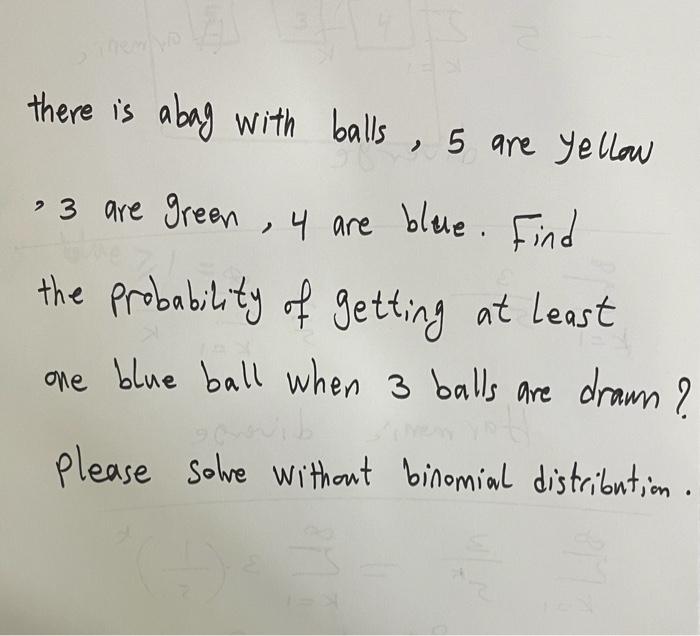 there is a bag with balls , 5 are yellow
, 3 are green , 4 are blue . Find
the probability of getting at least
one blue ball when 3 balls are drawn ?
Please solve without binomial distribution .